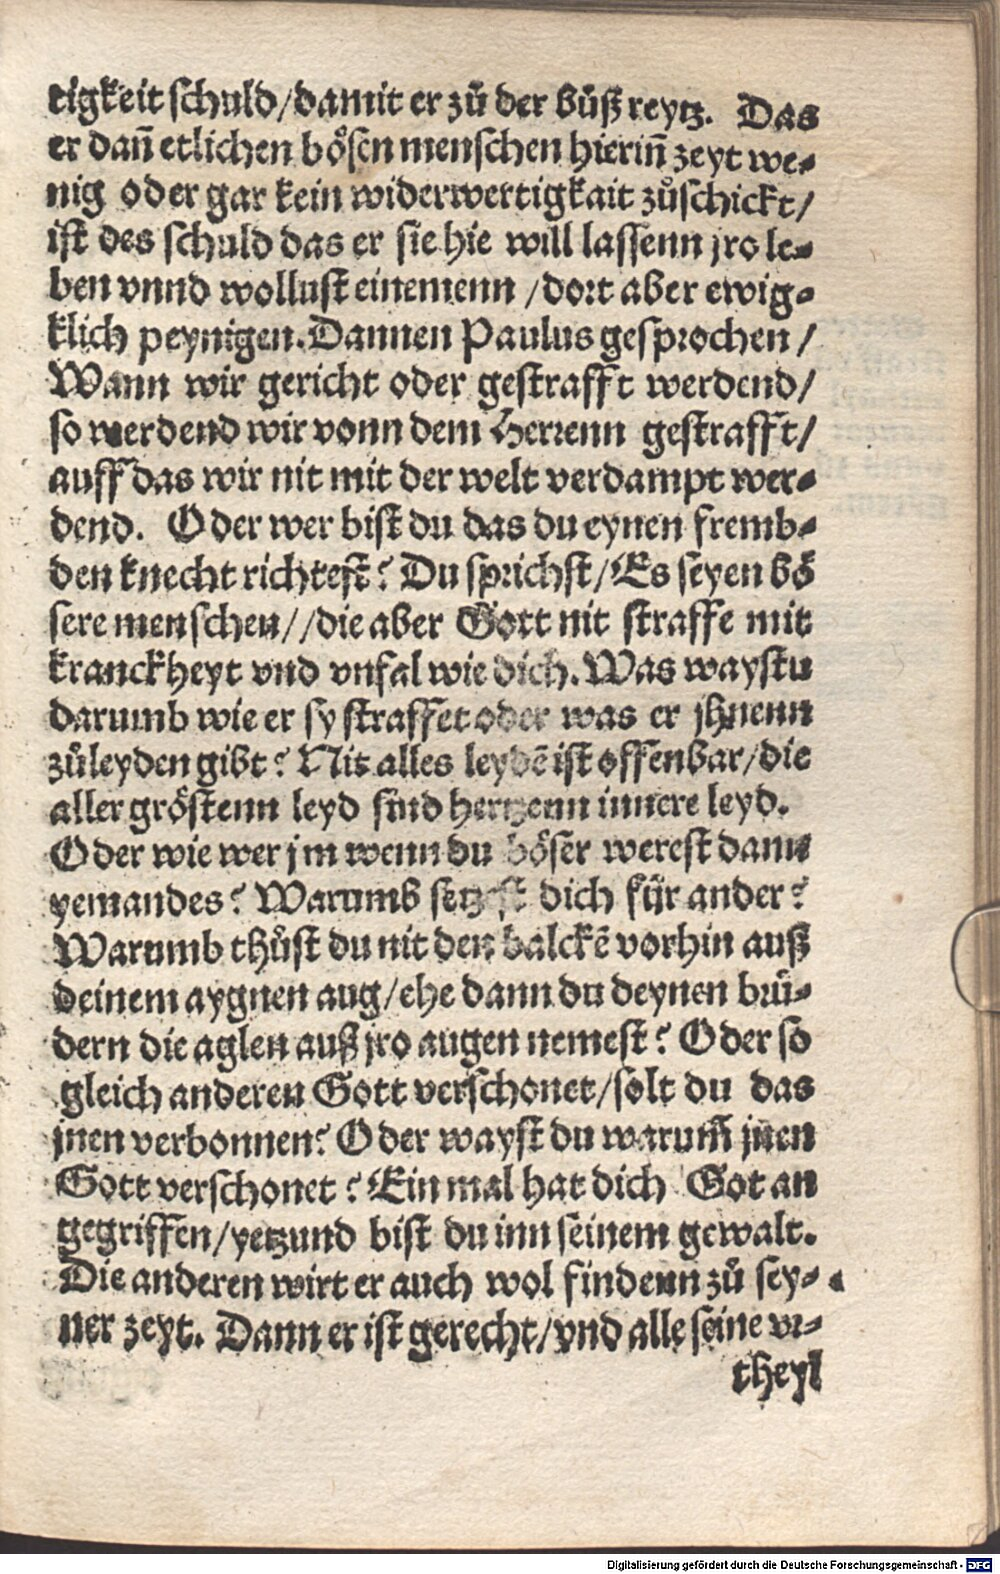 tigkeit schuld/damit er zů der bůß reytz. Das
er dañ etlichen bösen menschen hieriñ zeyt we⸗
nig oder gar kein widerwertigkait zůschickt/
ist des schuld das er sie hie will lassenn jro le⸗
ben vnnd wollust einemenn /dort aber ewig⸗
klich peynigen. Dannen Paulus gesprochen/
Wann wir gericht oder gestrafft werdend/
so werdend wir vonn dem Herrenn gestrafft/
auff das wir nit mit der welt verdampt wer⸗
dend. Oder wer bist du das du eynen fremb⸗
den knecht richtest? Du sprichst/Es seyen bö
sere menschen//die aber Gott nit straffe mit
kranckheyt vnd vnfal wie dich. Was waystu
darumb wie er sy straffet oder was er jhnenn
zůleyden gibt? Nit alles leydē ist offenbar/die
aller gröstenn leyd sind hertzenn innere leyd.
Oder wie wer jm wenn du böser werest dann
yemandes? Warumb setzest dich für ander?
Warumb thůst du nit den balckē vorhin auß
deinem aygnen aug/ehe dann du deynen brů⸗
dern die aglen auß jro augen nemest? Oder so
gleich anderen Gott verschonet/solt du das
jnen verbonnen? Oder wayst du warum̃ jnen
Gott verschonet? Ein mal hat dich Got an
gegriffen/yetzund bist du inn seinem gewalt.
Die anderen wirt er auch wol findenn zů sey⸗
ner zeyt. Dann er ist gerecht/vnd alle seine vr⸗
theyl
Digitalisierung gefördert durch die Deutsche Forschungsgemeinschaft - DFG